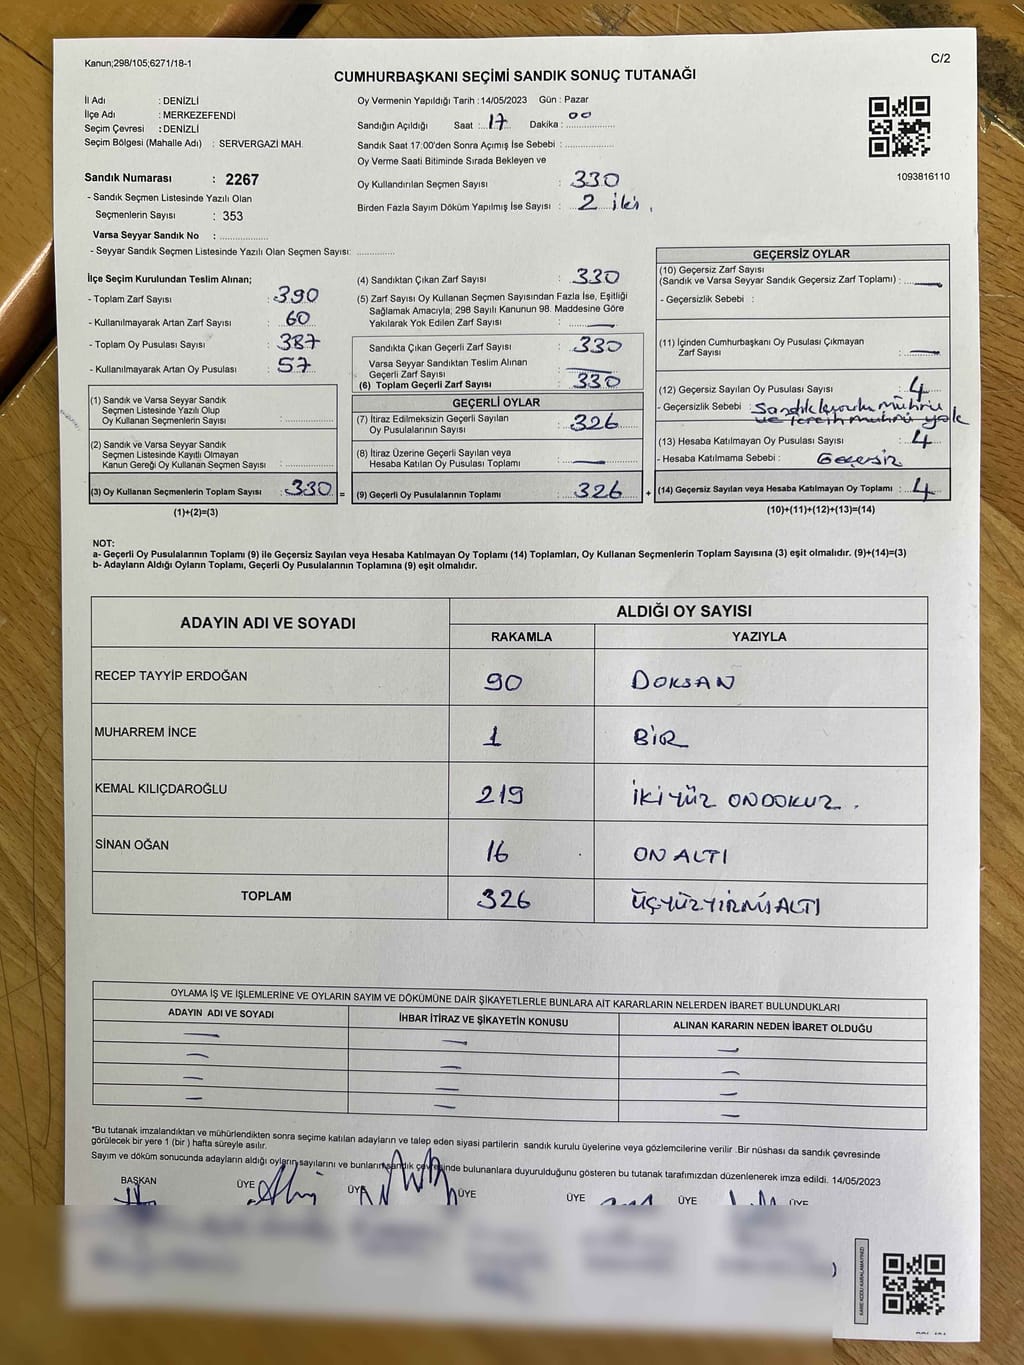 Kanun;298/105;6271/18-1
C/2
CUMHURBAŞKANI SEÇİMİ SANDIK SONUÇ TUTANAĞI
İl Adı : DENİZLİ
İlçe Adı : MERKEZEFENDİ
Seçim Çevresi : DENİZLİ
Seçim Bölgesi (Mahalle Adı) : SERVERGAZİ MAH.
Oy Vermenin Yapıldığı Tarih :14/05/2023 Gün : Pazar
Sandığın Açıldığı Saat :..17.. Dakika : 00
Sandık Saat 17:00'den Sonra Açımış İse Sebebi :
Oy Verme Saati Bitiminde Sırada Bekleyen ve
Oy Kullandırılan Seçmen Sayısı : 330
Birden Fazla Sayım Döküm Yapılmış İse Sayısı : 2 iki
1093816110
Sandık Numarası : 2267
- Sandık Seçmen Listesinde Yazılı Olan
Seçmenlerin Sayısı : 353
Varsa Seyyar Sandık No :
- Seyyar Sandık Seçmen Listesinde Yazılı Olan Seçmen Sayısı:
İlçe Seçim Kurulundan Teslim Alınan;
- Toplam Zarf Sayısı : 390
- Kullanılmayarak Artan Zarf Sayısı : 60
- Toplam Oy Pusulası Sayısı : 387
- Kullanılmayarak Artan Oy Pusulası : 57
(1) Sandık ve Varsa Seyyar Sandık
Seçmen Listesinde Yazılı Olup
Oy Kullanan Seçmenlerin Sayısı :
(2) Sandık ve Varsa Seyyar Sandık
Seçmen Listesinde Kayıtlı Olmayan
Kanun Gereği Oy Kullanan Seçmen Sayısı :
(3) Oy Kullanan Seçmenlerin Toplam Sayısı : 330 =
(1)+(2)=(3)
(4) Sandıktan Çıkan Zarf Sayısı : 330
(5) Zarf Sayısı Oy Kullanan Seçmen Sayısından Fazla İse, Eşitliği
Sağlamak Amacıyla; 298 Sayılı Kanunun 98. Maddesine Göre
Yakılarak Yok Edilen Zarf Sayısı : —
Sandıkta Çıkan Geçerli Zarf Sayısı : 330
Varsa Seyyar Sandıktan Teslim Alınan
Geçerli Zarf Sayısı : —
(6) Toplam Geçerli Zarf Sayısı : 330
GEÇERLİ OYLAR
(7) İtiraz Edilmeksizin Geçerli Sayılan
Oy Pusulalarının Sayısı : 326
(8) İtiraz Üzerine Geçerli Sayılan veya
Hesaba Katılan Oy Pusulası Toplamı : —
(9) Geçerli Oy Pusulalarının Toplamı : 326 +
GEÇERSİZ OYLAR
(10) Geçersiz Zarf Sayısı
(Sandık ve Varsa Seyyar Sandık Geçersiz Zarf Toplamı) : —
- Geçersizlik Sebebi :
(11) İçinden Cumhurbaşkanı Oy Pusulası Çıkmayan
Zarf Sayısı : —
(12) Geçersiz Sayılan Oy Pusulası Sayısı : 4
- Geçersizlik Sebebi : Sandık kurulu mührü
ve tercih mührü yok
(13) Hesaba Katılmayan Oy Pusulası Sayısı : 4
- Hesaba Katılmama Sebebi : Geçersiz
(14) Geçersiz Sayılan veya Hesaba Katılmayan Oy Toplamı : 4
(10)+(11)+(12)+(13)=(14)
NOT:
a- Geçerli Oy Pusulalarının Toplamı (9) ile Geçersiz Sayılan veya Hesaba Katılmayan Oy Toplamı (14) Toplamları, Oy Kullanan Seçmenlerin Toplam Sayısına (3) eşit olmalıdır. (9)+(14)=(3)
b- Adayların Aldığı Oyların Toplamı, Geçerli Oy Pusulalarının Toplamına (9) eşit olmalıdır.
ADAYIN ADI VE SOYADI
ALDIĞI OY SAYISI
RAKAMLA YAZIYLA
RECEP TAYYİP ERDOĞAN 90 DOKSAN
MUHARREM İNCE 1 BİR
KEMAL KILIÇDAROĞLU 219 İKİYÜZ ONDOKUZ .
SİNAN OĞAN 16 ON ALTI
TOPLAM 326 ÜÇYÜZYİRMİALTI
OYLAMA İŞ VE İŞLEMLERİNE VE OYLARIN SAYIM VE DÖKÜMÜNE DAİR ŞİKAYETLERLE BUNLARA AİT KARARLARIN NELERDEN İBARET BULUNDUKLARI
ADAYIN ADI VE SOYADI İHBAR İTİRAZ VE ŞİKAYETİN KONUSU ALINAN KARARIN NEDEN İBARET OLDUĞU
— — —
— — —
— — —
— — —
*Bu tutanak imzalandıktan ve mühürlendikten sonra seçime katılan adayların ve talep eden siyasi partilerin sandık kurulu üyelerine veya gözlemcilerine verilir .Bir nüshası da sandık çevresinde
görülecek bir yere 1 (bir ) hafta süreyle asılır.
Sayım ve döküm sonucunda adayların aldığı oyların sayılarını ve bunların sandık çevresinde bulunanlara duyurulduğunu gösteren bu tutanak tarafımızdan düzenlenerek imza edildi. 14/05/2023
BAŞKAN ÜYE ÜYE ÜYE ÜYE ÜYE ÜYE
KARE KODU KARALAMAYINIZ!